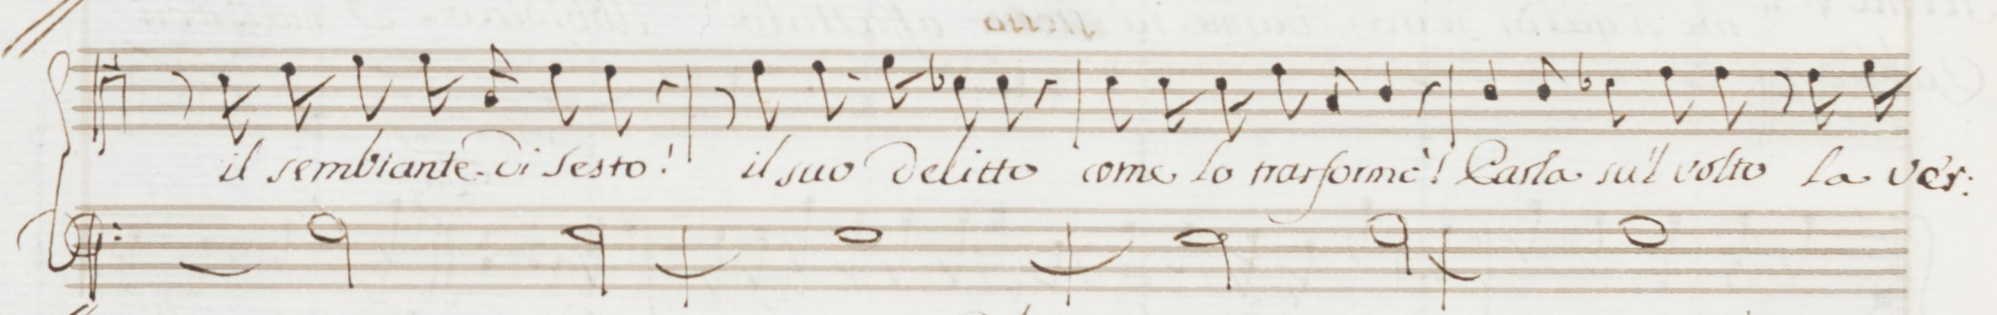 il sembiante di Sesto! il suo delitto come lo trasformò! Parla su'l volto la ver: